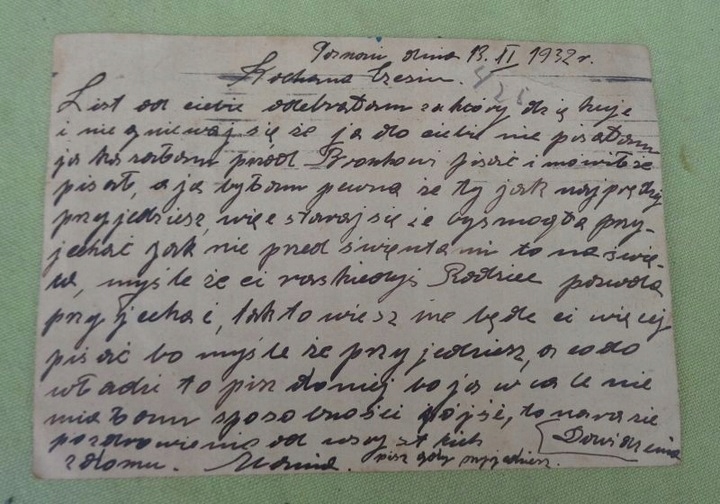 Poznań, dnia 13. II 1932 r.
Kochana Czesiu.
List od ciebie odebrałam za który dziękuje
i nie gniewaj się że ja do ciebie nie pisałam
ja kazałam przód Bronkowi pisać i mówił że
pisał, a ja byłam pewna że ty jak najprędzy
przyjedziesz, więc staraj się że bys mogła przy-
jechać jak nie przed świętami to na świę-
ta, myśle że ci raskiedyś Rodzice pozwolą
przyjechać, tak to wiesz nie będe ci więcej
pisać bo myśle że przyjedziesz, a co do
to pisz do niej bo ja wcale nie
miałam sposobności pójść, to narazie
pozdrowienia od wszystkich Dowidzenia
z domu. pisz gdy przyjedziesz.